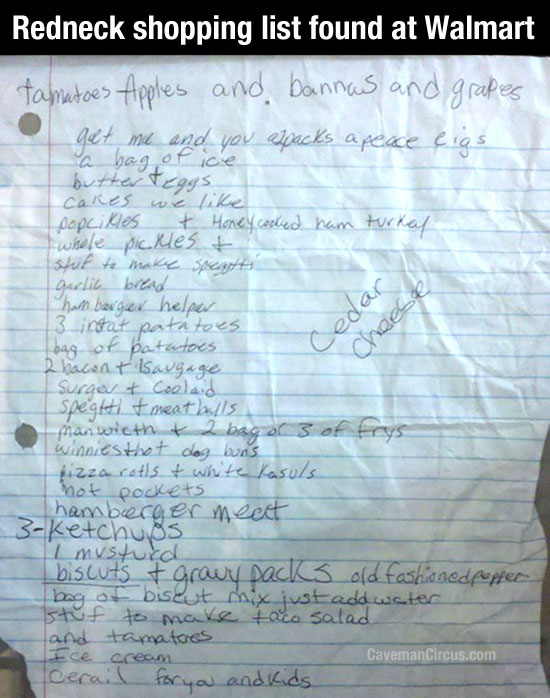 Redneck shopping list found at Walmart
tamatoes Apples and bannas and grapes
get me and you 2packs apeace Cigs
a bag of ice
butter + eggs
cakes we like
popcikles + Honeycooked ham turkey
whole pickles +
stuf to make spegitti
garlic bread
hambarger helper
3 instat patatoes
bag of patatoes
Cedar
Cheese
2 bacon + 1 Sausgage
Surger + Coolaid
spegitti + meatballs
manwicth + 2 bag or 3 of frys
winniesthot dog buns
pizza rolls + white Kasuls
hot pockets
hamberger meat
3-Ketchups
1 musturd
biscuts + gravy packs old fashioned pepper
bag of biscut mix just add water
stuf to make taco salad
and tamatoes
Ice cream
Cerail for you and kids
CavemanCircus.com